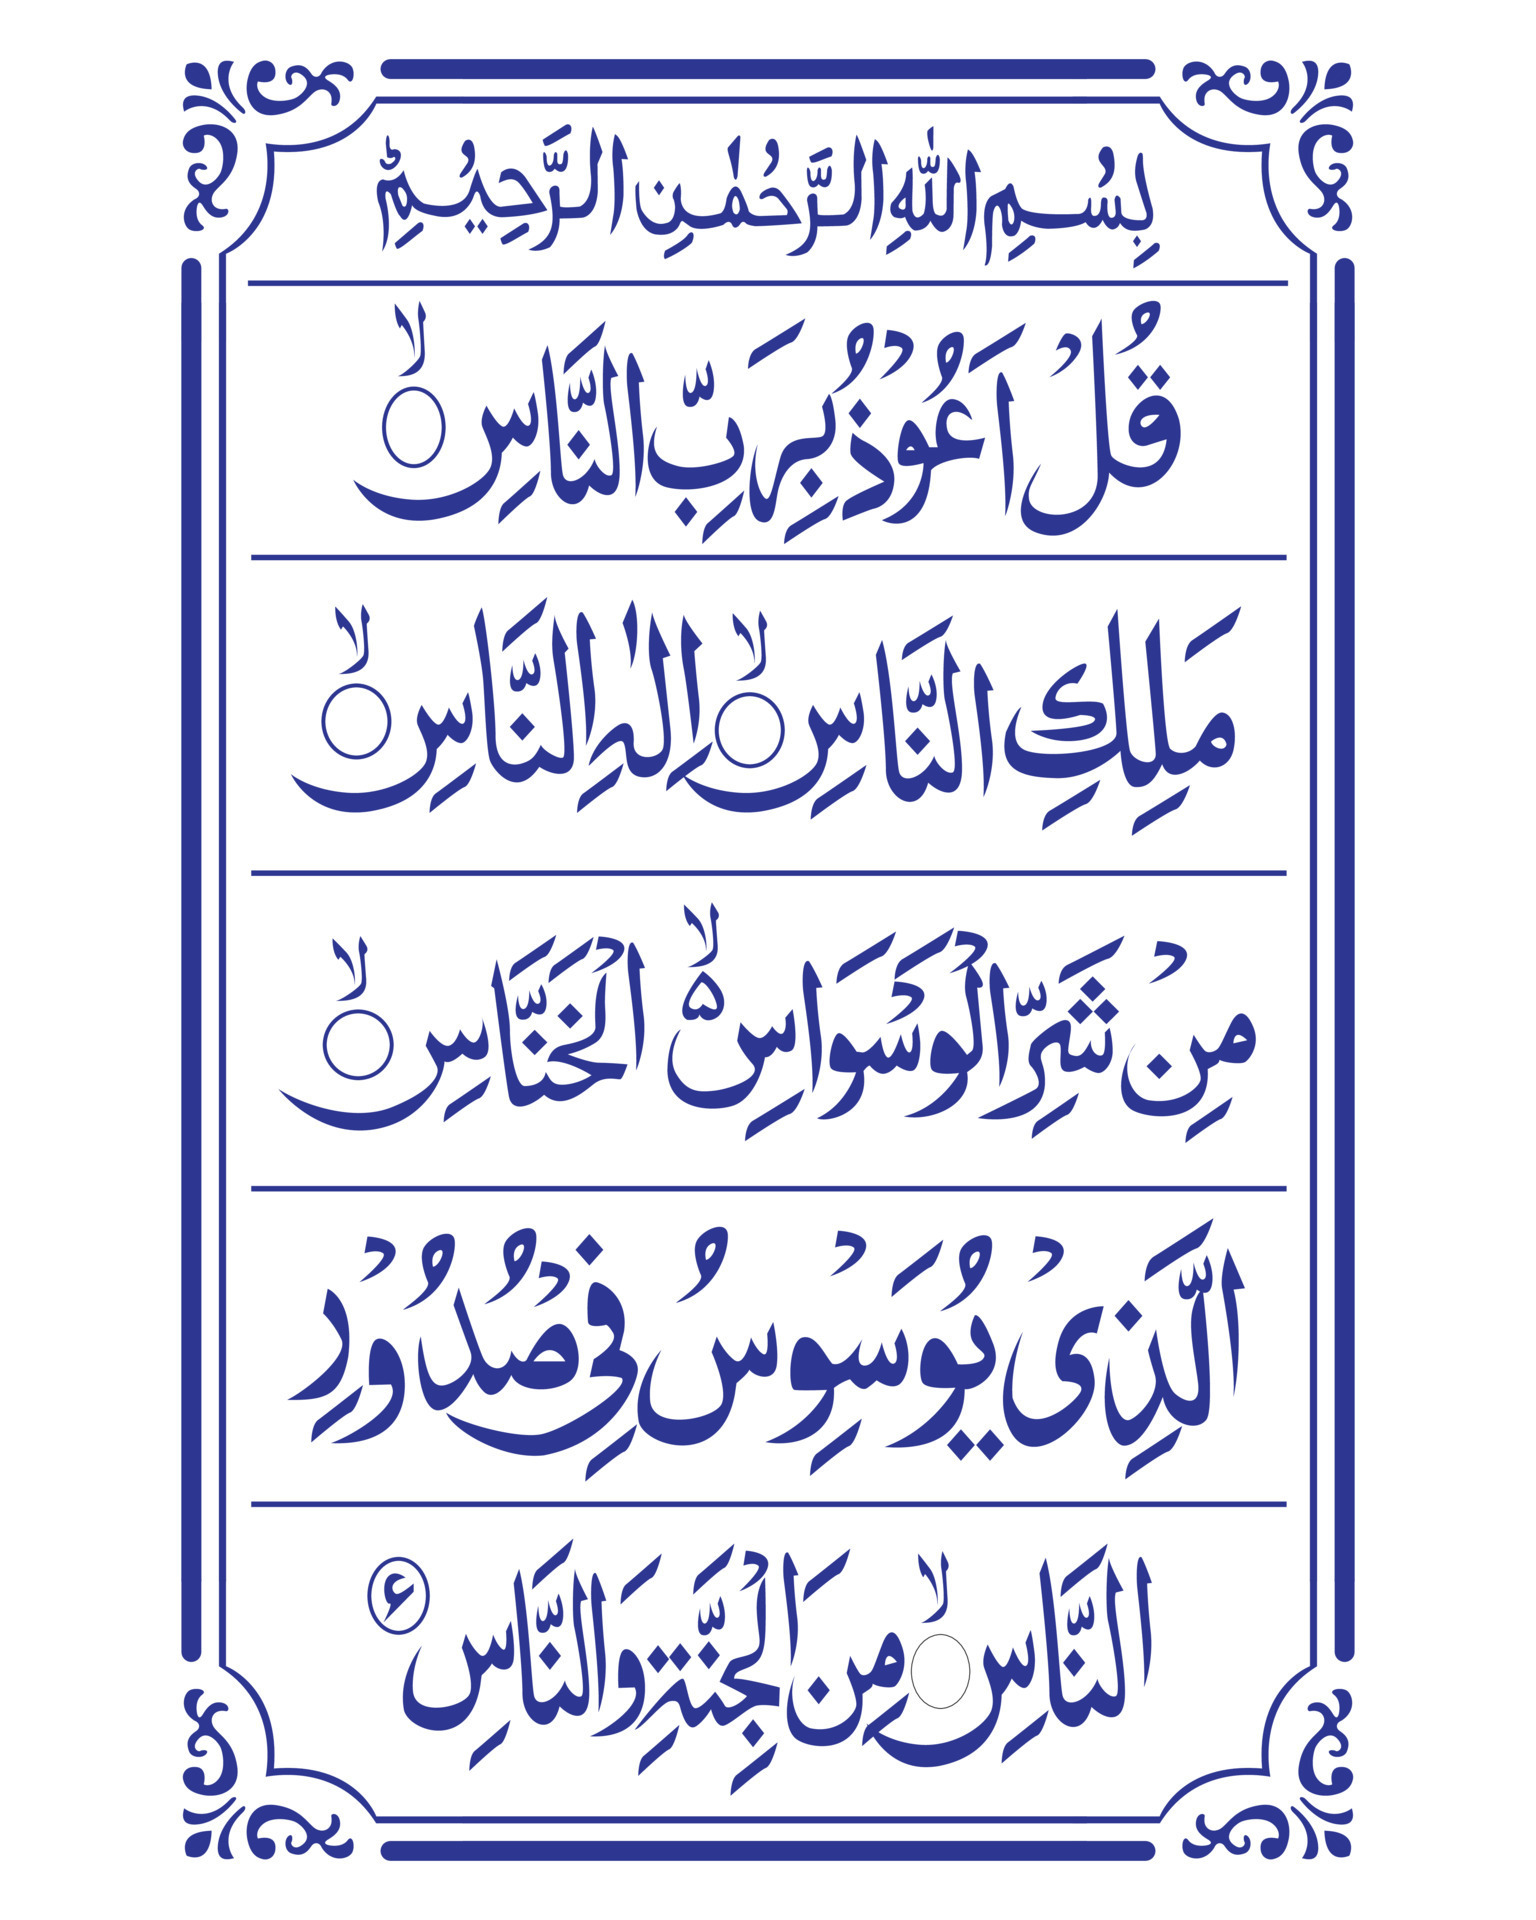 بِسْمِ اللّٰهِ الرَّحْمٰنِ الرَّحِيْمِ
قُلْ اَعُوْذُ بِرَبِّ النَّاسِ ۙ○
مَلِكِ النَّاسِ ۙ○ اِلٰهِ النَّاسِ ۙ○
مِنْ شَرِّ الْوَسْوَاسِ ەۙ الْخَنَّاسِ ۙ○
الَّذِیْ یُوَسْوِسُ فِیْ صُدُوْرِ
النَّاسِ ۙ○ مِنَ الْجِنَّةِ وَالنَّاسِ ۶